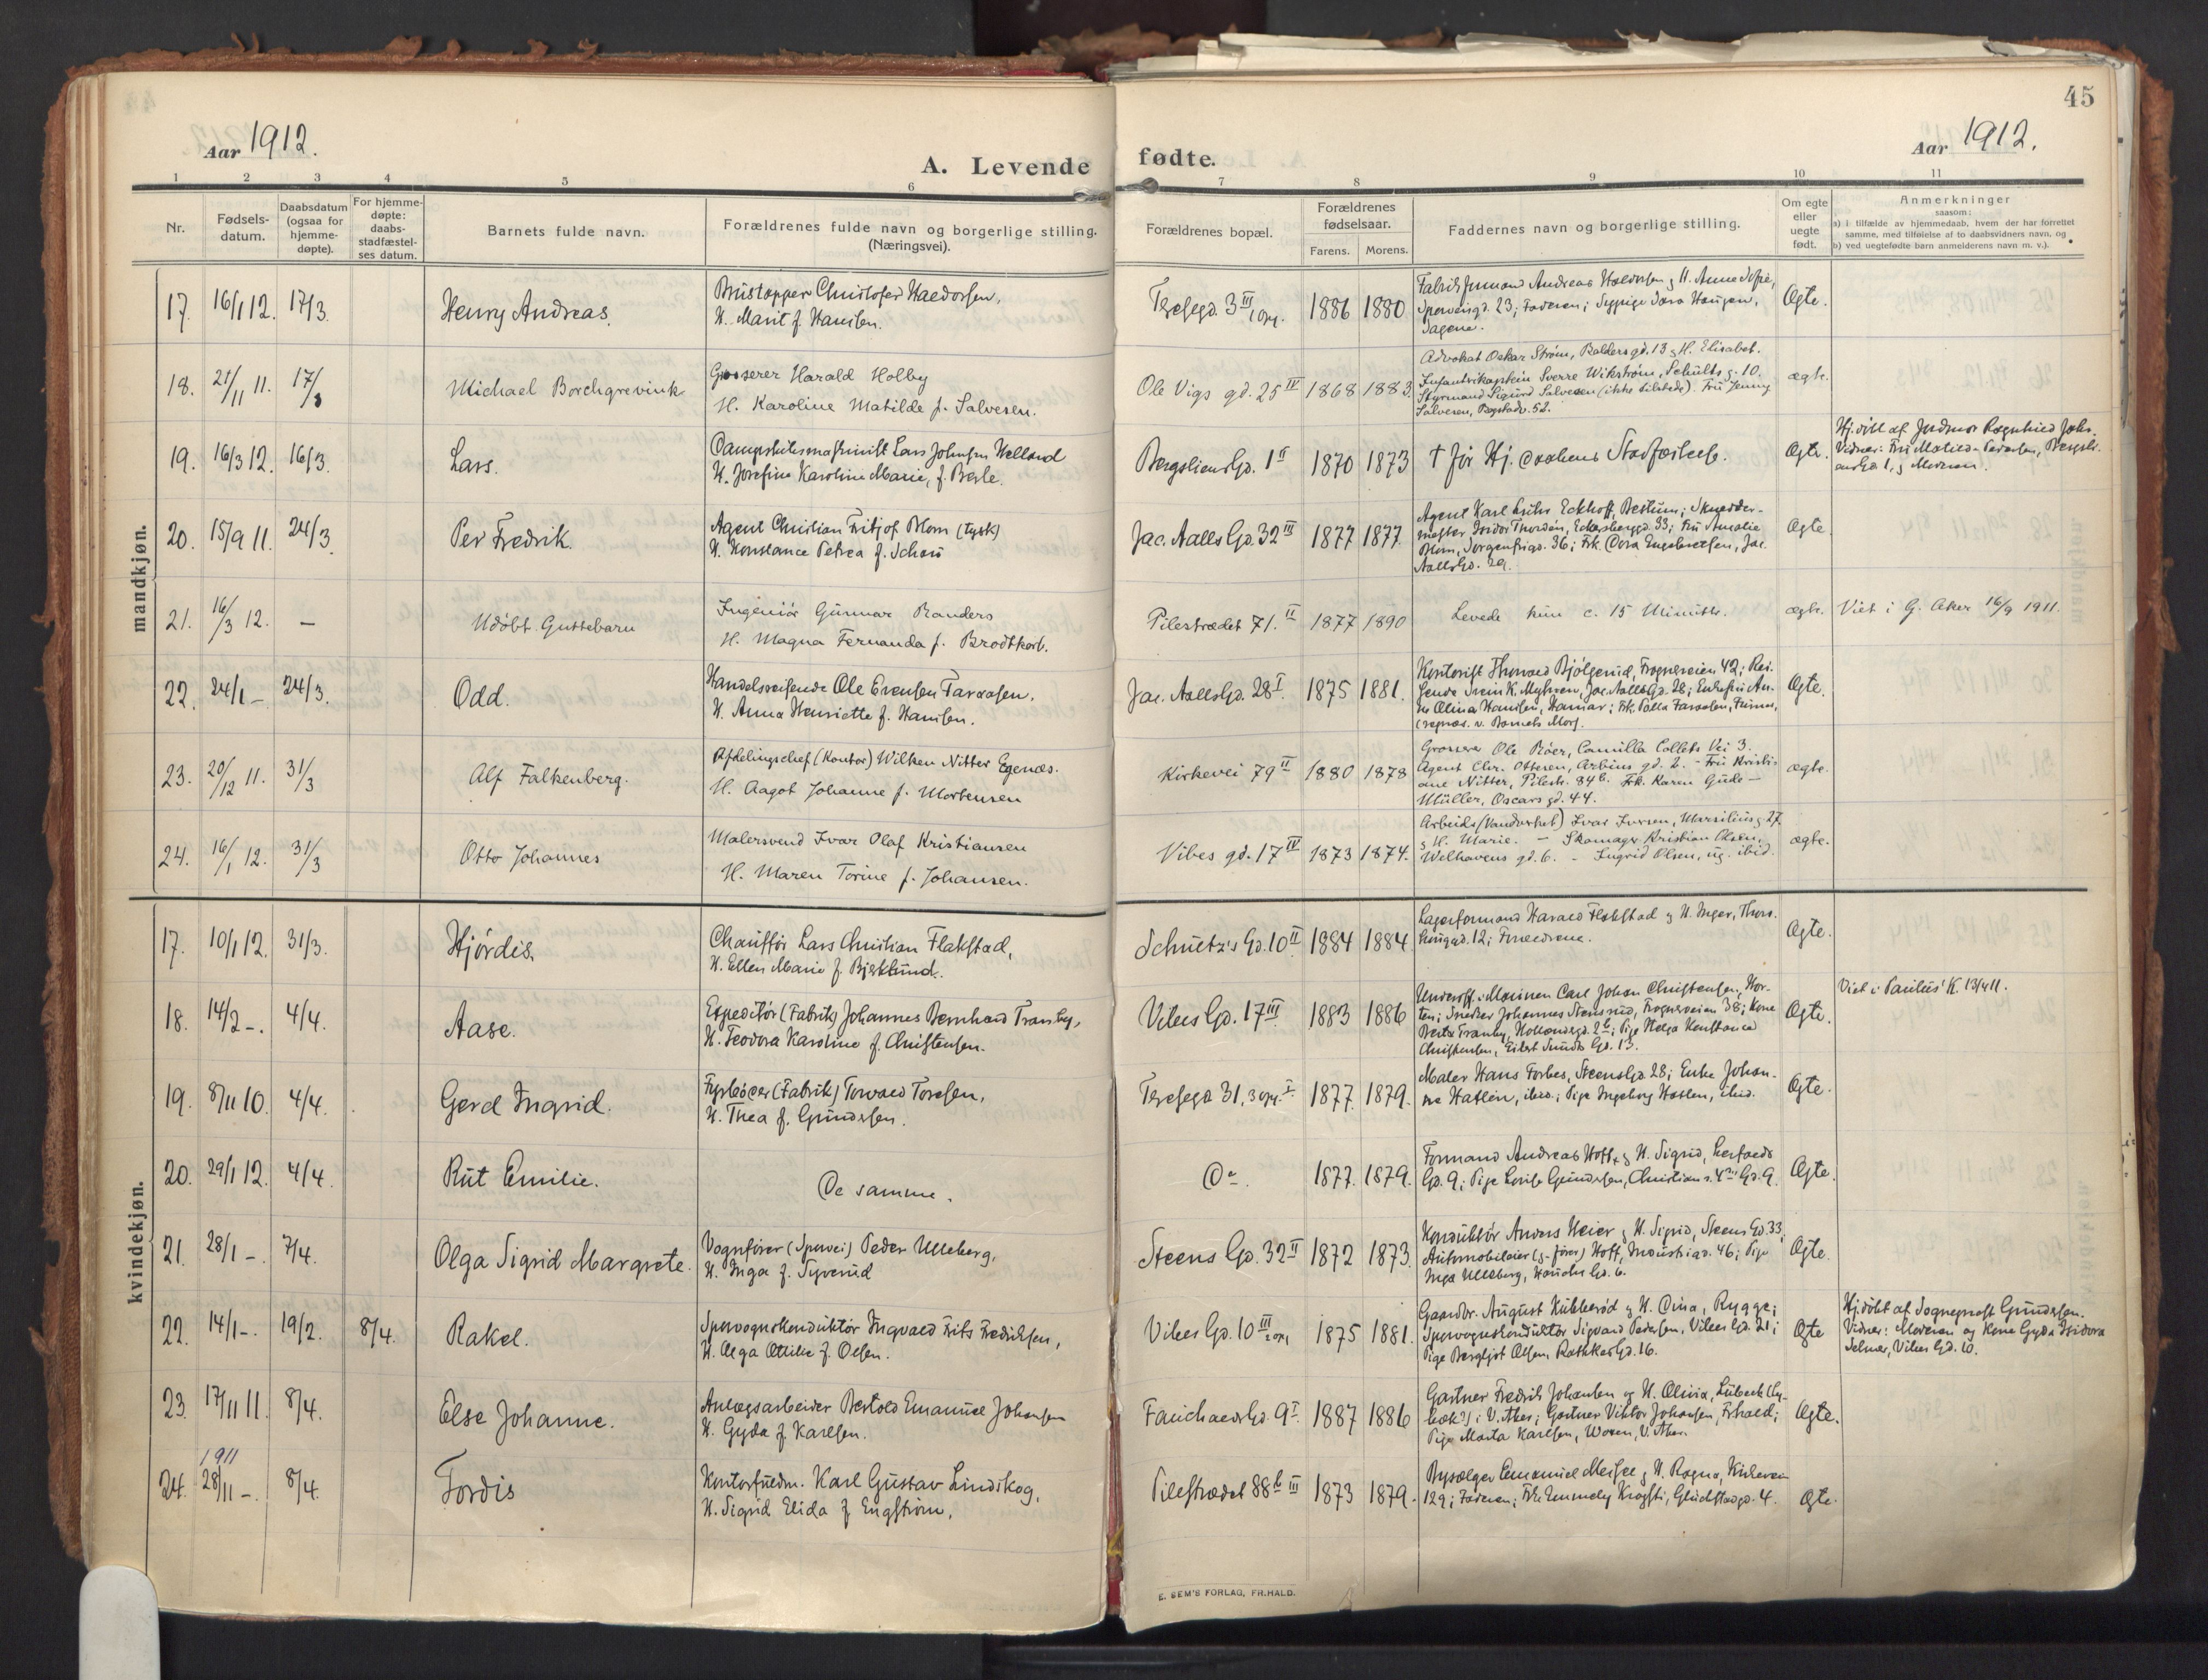 45
Aar 1912.
A. Levende fødte.
Aar 1912.
1 2 3 4 5 6 7 8 9 10 11
Nr.
Fødsels-
datum.
Daabsdatum
(ogsaa for
hjemme-
døpte).
For hjemme-
døpte:
daabs-
stadfæstel-
ses datum.
Barnets fulde navn.
Forældrenes fulde navn og borgerlige stilling.
(Næringsvei).
Forældrenes bopæl.
Forældrenes
fødselsaar.
Farens. Morens.
Faddernes navn og borgerlige stilling.
Om egte
eller
uegte
født.
Anmerkninger
saasom:
a) i tilfælde av hjemmedaab, hvem der har forrettet
samme, med tilføielse af to daabsvidners navn, og
b) ved uegtefødte barn anmelderens navn m. v.).
mandkjøn.
17. 16/1 12. 17/3. Henry Andreas.
H. Marit f. Hansen.
Teresegd. 3 III 1886 1880
Spervеrigd. 23; Faderen; Sypige Hansen,
Sagene.
Ægte.
18. 21/11 11. 17/3 Michael Borchgrevink
Grosserer Harald Holby
H. Karoline Matilde f. Salvesen.
Ole Vigs gd. 25 IV 1868 1883.
Advokat Oskar Strøm, Baldersgd. 13 & H. Elisabet.
Infanterikaptein Sverre Wikstrøm, Schults g. 10.
Styrmand Sigurd Salvesen (ikke tilstede). Fru Jenny
Salvesen, Bogstadv. 52.
ægte.
19. 16/3 12. 16/3. Lars.
Dampskibsmaskinist Lars Johnsen Helland
H. Josefine Karoline Marie, f. Berle.
Bergsliens Gd. 1 II 1870 1873
† før Hj. daabens Stadfæstelse.
Ægte.
Hj.døbt af Jordmor Ragnhild
Vidner: Fru Matilde Pedersen,
20. 15/9 11. 24/3. Per Fredrik.
Agent Christian Fritjof Blom (tysk)
H. Konstance Petrea f. Schou
Jac. Aalls Gd. 32 III 1877 1877
Agent Karl Eckhoff, Bestum; Skrædder-
mester Isidor Thordén, Eckersberggd. 33; Fru Amalie
Blom, Sorgenfrigd. 36; Frk. Dora Engebretsen, Jac.
Aalls Gd. 29.
Ægte
21. 16/3 12. — Udøbt Guttebarn
Ingeniør Gunnar Randers
H. Magna Fernanda f. Brodtkorb.
Pilestrædet 71. II 1877 1890
Levede kun c. 15 Minutter.
ægte.
Viet i G. Aker 16/9 1911.
22. 24/1 – 24/3. Odd.
Handelsreisende Ole Evensen Tarraasen,
H. Anna Henriette f. Hansen.
Jac. Aalls Gd. 28 I. 1875 1881.
Kontorist Thorvald Bjølgerud, Frognerveien 42; Rei-
sende Svein K. Myhren, Jac. Aalls Gd. 28; Enkefru An-
ne Olina Hansen, Hamar;
Ægte.
23. 20/12 11. 31/3 Alf Falkenberg.
Afdelingschef (Kontor) Wilken Nitter Egenæs.
H. Aagot Johanne f. Mortensen
Kirkevei 79 II 1880 1878
Grosserer Ole Röer, Camilla Collets Vei 3.
Agent Chr. Ottesen, Arbins gd. 2. – Fru Kristi-
ane Nitter, Pilestr. 84 b. Frk. Karen Gude –
Müller, Oscars gd. 44.
ægte.
24. 16/1 12. 31/3 Otto Johannes
Malersvend Ivar Olaf Kristiansen
H. Maren Torine f. Johansen.
Vibes gd. 17 IV 1873 1874.
Arbeids. (Vandverket) Ivar Iversen, Marsilius g 27
& H. Marie. – Skomager Kristian Olsen,
Welhavens gd. 6. – Ingrid Olsen, ug. ibid.
ægte.
kvindekjøn.
17. 10/1 12. 31/3. Hjørdis.
Chauffør Lars Christian Flakstad,
H. Ellen Marie f. Bjerklund.
Schultz's Gd. 10 II 1884 1884
Lagerformand Harald Flakstad & H. Inger,
12; Forældrene.
Ægte.
18. 14/2 –. 4/4. Aase.
Expeditør (Fabrik) Johannes Bernhard Tranby,
H. Teodora Karoline f. Christensen.
Vibes Gd. 17 III 1883 1886
Underoff. i Marinen Carl Johan Christensen, Hor-
ten; Snedker Johannes Stensrud, Frognerveien 38; Kone
Berta Tranby, Hollendergd. 2 b; Pige Helga Konstance
Christensen, Eilert Sundts Gd. 13.
Ægte.
Viet i Paulus' K. 13/4 11.
19. 8/11 10. 4/4. Gerd Ingrid.
Fyrbøder (Fabrik) Torvald Toresen,
H. Thea f. Gundersen.
Teresegd 31, 3 opg. I. 1877. 1879.
Maler Hans Forbes, Steens Gd. 28; Enke Johan-
ne Hatlen, ibid.; Pige Ingeborg Hatlen, ibid.
Ægte.
20. 29/1 12. 4/4. Rut Emilie.
De samme.
Do. 1877. 1879.
Formand Andreas Hoff & H. Sigrid,
Gd. 9; Pige Lovise Gundersen, Christian d. 4des Gd. 9.
Ægte.
21. 28/1 –. 7/4. Olga Sigrid Margrete.
Vognfører (Sporvei) Peder Ulleberg,
H. Inga f. Syverud
Steens Gd. 32 II 1872 1873.
Konduktør Anders Meier & H. Sigrid, Steens Gd. 33,
Automobileier (&-fører) Hoff, Industrigd. 46; Pige
Inga Ulleberg, Gd. 6.
Ægte.
22. 14/1 –. 19/2. 8/4. Rakel.
Sporvognskonduktør Ingvald Frits Fredriksen,
H. Olga Ottilie f. Olsen.
Vibes Gd. 10 III 2 opg 1875 1881.
Gaardbr. August Kubberød & H. Dina, Rygge;
Sporvognskonduktør Sigvard Pedersen, Vibes Gd. 21;
Pige Bergljot Olsen, Rathkes Gd. 16.
Ægte
Hj.døbt af Sogneprest Gundersen.
Vidner: Moderen og Kone Gyda Isidora
Selmer, Vibes Gd. 10.
23. 17/11 11. 8/4. Else Johanne.
Anlægsarbeider Bertold Emanuel Johansen
H. Gyda f. Karlsen.
Fauchalds Gd. 9 I. 1887 1886
Gartner Fredrik Johansen og H. Olivia, Lübeck (Ly-
bæk?) i V. Aker; Gartner Viktor Johansen, Frhald;
Pige Marta Karlsen, Voxen, V. Aker.
Ægte.
1911
24. 28/11 –. 8/4. Tordis
Kontorfuldm. Karl Gustav Lindskog,
H. Sigrid Elida f Engström,
Pilestrædet 88 b III 1873 1879.
Bysælger Emanuel & H. Ragna, Kirkeveien
129; Faderen; Frk. Emmely Glückstadgd. 4.
Ægte.
E. SEM'S FORLAG, FR.HALD.